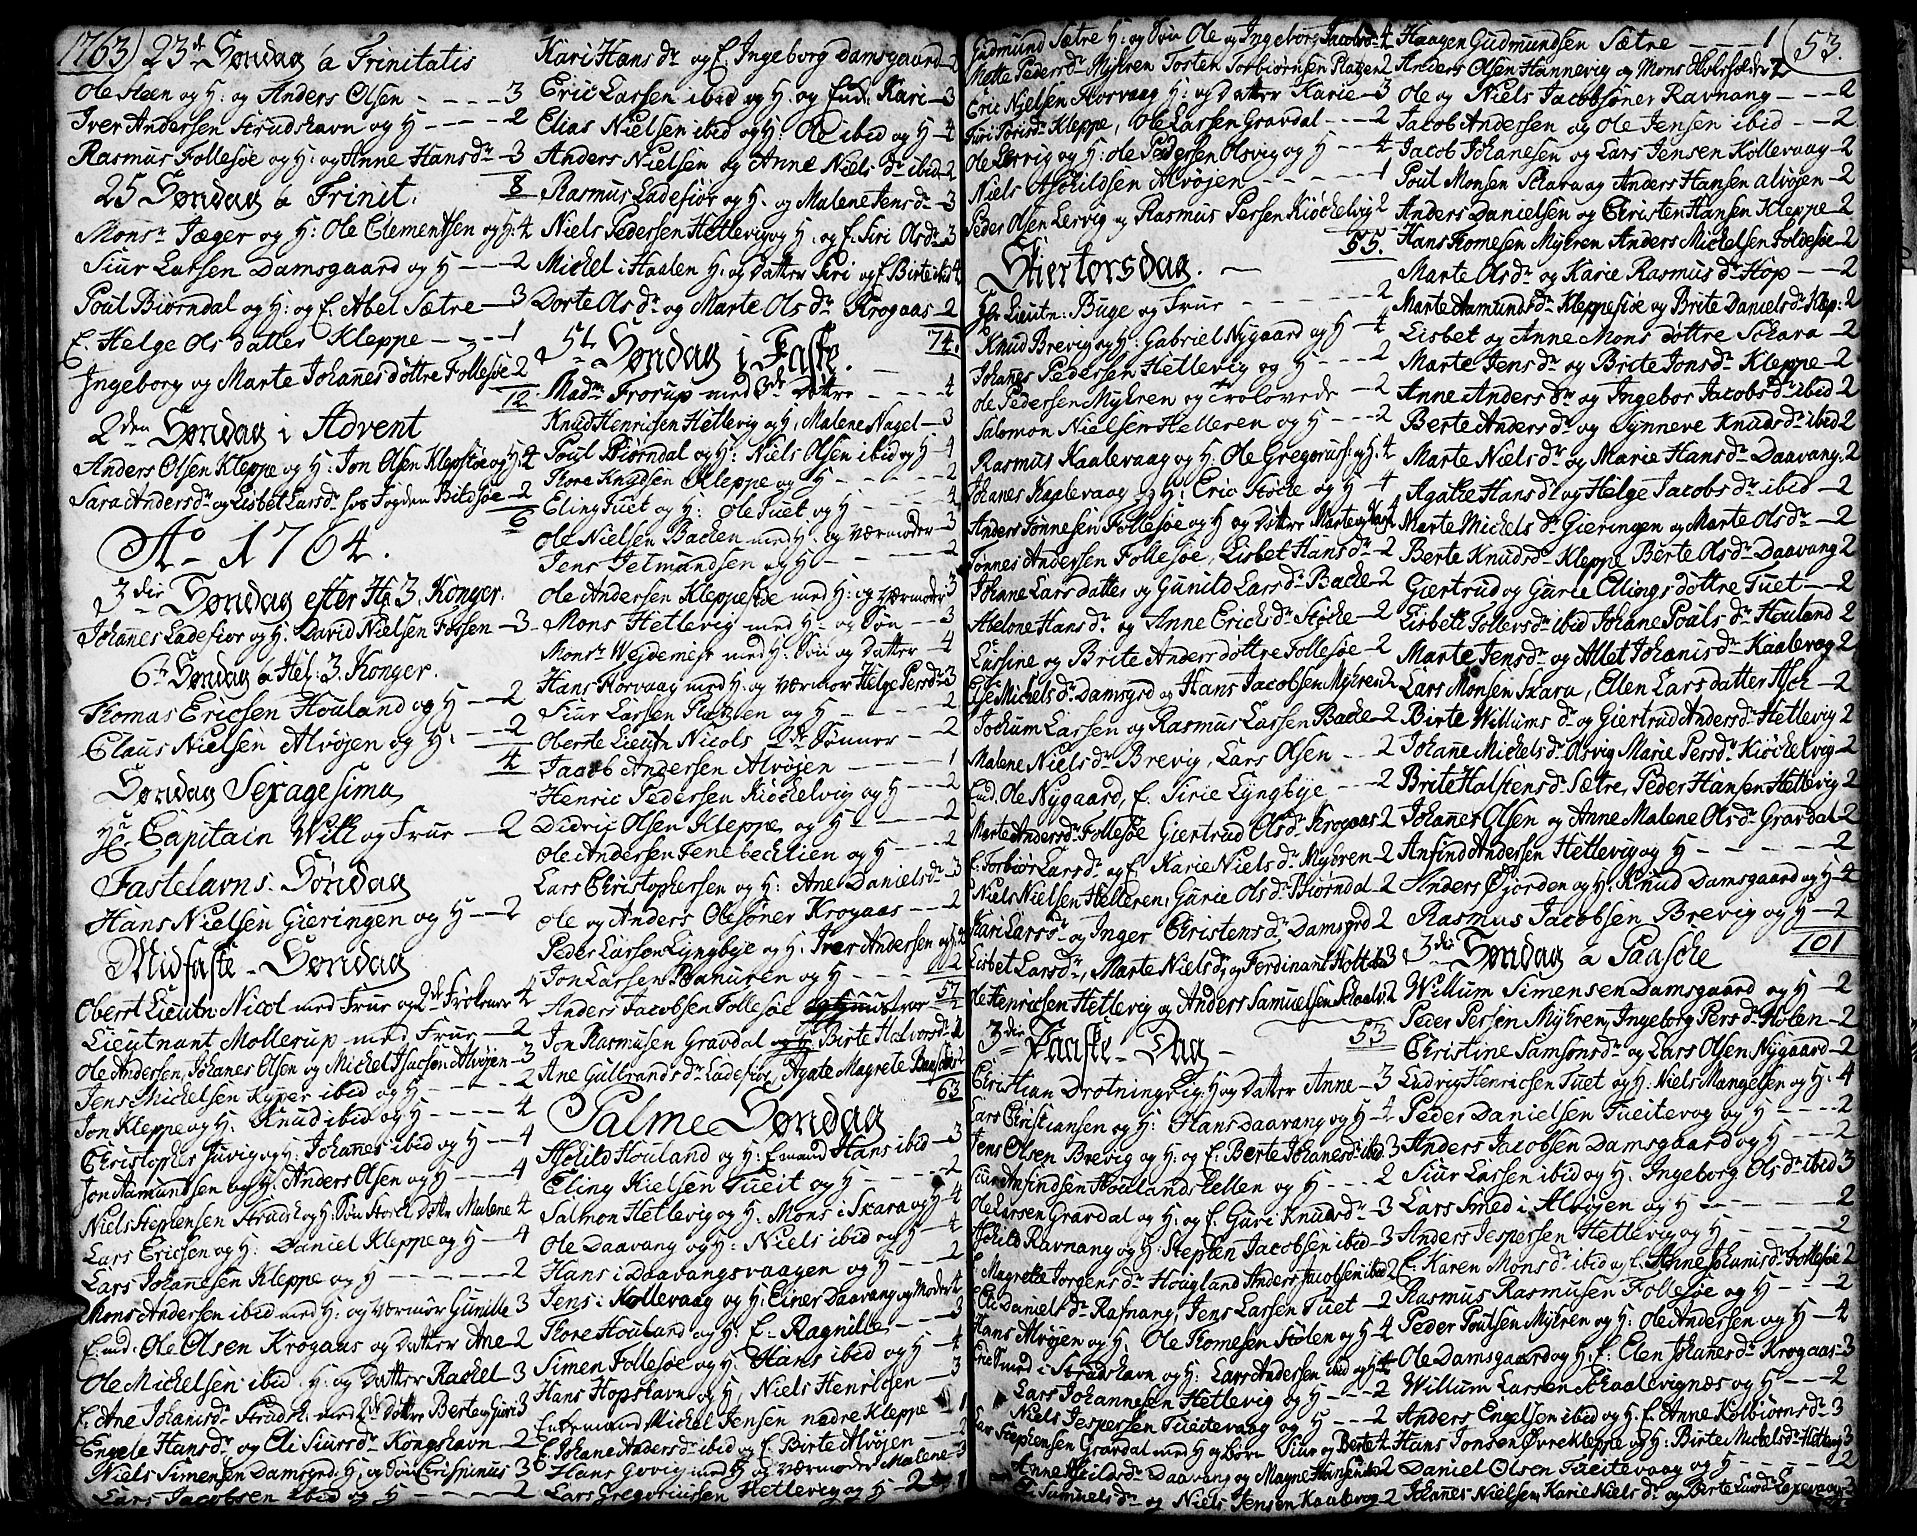 1763) 23de Søndag a Trinitatis
Ole Steen og H: og Anders Olsen - - - - 3
Iver Andersen Strudshavn og H - - - - 2
Rasmus Follesøe og H: og Anne Hansdr - 3
8
25 Søndag a Trinit.
Monsr Jæger og H: Ole Clementsen og H: 4
Siur Larsen Damsgaard og H - - - 2
Poul Biørndal og H: og E. Abel Sætre - 3
E. Helge Olsdatter Kleppe - - - 1
Ingeborg og Marte Johanesdøttre Follesøe 2
12
2den Søndag i Advent
Anders Olsen Kleppe og H: Jon Olsen Klepsøe og H: 4
Sara Andersdr og Lisbet Larsdr hos Fogden Bildsøe - 2
6
Ao 1764.
3die Søndag efter He 3. Konger.
Johannes Ladefior og H: David Nielsen Fossen - 3
6te Søndag a Hel: 3. Konger.
Thomas Ericsen Houland og H - 2
Claus Nielsen Alvøjen og H. - - - 2
4
Søndag Sexagesima
Hr Capitain Wilk og Frue - 2
Fastelavns Søndag
Hans Nielsen Gieringen og H - 2
Midfaste-Søndag
Oberst Lieutn. Nicol med Frue og 2de Frøkener 4
Lieutnant Mollerup med Frue - - 2
Ole Andersen, Johanes Olsen og Michel Isacsøn Alvøjen - 3
Jens Michelsen Kyper ibid og H - - - - - 2
Jon Kleppe og H: Knud ibid og H - - - - 4
Christopher Juvig og H: Johannes ibid og H - - 4
Jon Aamundsen og H: Anders Olsen og H - - - 4
Niels Stephensen Strudsh og H: Søn Dattr Malene 4
Lars Ericsen og H: Daniel Kleppe og H - 4
Lars Johanesen Kleppe og H - - - - - - 2
Mons Andersen ibid med H: og Værmor Gunille 3
Emd: Ole Olsen Krogaas og Datter Ane - 2
Ole Michelsen ibid H: og Datter Rachel - 3
E. Ane Johanisdr Strudsh. med 2de Døttre Berte og Guri 3
Engele Hansdr og Eli Siursdr Kongshavn - 2
Niels Simensen Damsgrd: H. og Søn Crispinus 3
Lars Jacobsen ibid og H - - - - 2
Kari Hansdr og E. Ingeborg Damsgaard - 2
Eric Larsen ibid og H: og Emd: Kari - 3
Elias Nielsen ibid og H: Ole ibid og H - 4
Anders Nielsen og Anne Nielsdr ibid - 2
Rasmus Ladefior og H. og Malene Jensdr - 3
Niels Pedersen Hetlevig og H. og E. Siri Olsdr - 3
Michel i Haalen H: og Datter Siri og E. Birte ibid 4
Dorte Olsdr og Marte Olsdr Krogaas - 2
74.
5te Søndag i Faste.
Madm Frorup med 3de Døttre - - - - 4
Knud Henricsen Hetlevig og H. Malene Nagel - 3
Poul Biørndal og H: Niels Olsen ibid og H 4
Thore Knudsen Kleppe og H - - - - - 2
Eling Tuet og H: Ole Tuet og H - - - - 4
Ole Nielsen Backen med H. og Værmoder - 3
Jens Jetmundsen og H - - - - - - 2
Ole Andersen Kleppesøe med H: og Værmoder 3
Mons Hetlevig med H. og Søn - - - 3
Monsr Wejdemejr med H: Søn og Datter - 4
Hans Horvaag med H: og Værmor Helge Persdr 3
Siur Larsen Pladsen og H - - - - - 2
Oberste Lieutn Nicols 2de Sønner - - 2
Jacob Andersen Alvøjen - - - - - - 1
Henric Pedersen Kiøckelvig og H - - - 2
Didric Olsen Kleppe og H - - - - 2
Ole Andersen Tenebechlien og H - - - 2
Lars Christophersen og H: Ane Danielsdr - 3
Ole og Anders Olesøner Krogaas - - - 2
Peder Larsen Lyngbye og H: Iver Andersen og H
Jon Larsen Banuren og H - - - - - 2
57
Anders Jacobsen Follesøe
Jon Rasmusen Gravdal og H Birte Halvorsdr
Ane Gulbrandsdr Ladefior, Agate Magrete 2
63
Palme Søndag
Askild Houland og H: Emand Hans ibid - - 3
Eling Nielsen Tueit og H - - - - 2
Salmon Hetlevig og H: Mons i Skara og H - 4
Ole Daavang og H: Niels ibid og H - - 4
Hans i Daavangsvaagen og H - - - - 2
Jens i Kollevaag og H: Einer Daavang og Moder 4
Thore Houland og H: E. Ragnille - - - 3
Simen Follesøe og H. Hans ibid og H - - 4
Hans Hopshavn og H. Niels Henricsen - - 3
Enkemand Michel Jensen nedre Kleppe - 1
E. Johane Andersdr ibid og E. Birte Alvøjen - 2
Hans Govig med H og Værmoder Malene 3
Lars Gregoriussen Hetlevig og H - 2
Gudmund Sætre H: og Søn Ole og Ingeborg Jacobsdr 4
Mette Pedersdr Myhren Tosten Torbiørnsen Platzen 2
Eric Nielsen Horvaag H: og Datter Karie - 3
Siri Jorisdr Kleppe, Ole Larsen Gravdal - - - 2
Ole Lervig og H: Ole Pedersen Olsvig og H - - 4
Niels Askildsen Alvøjen - - - - - - 1
Peder Olsen Lervig og Rasmus Persen Kiöckelvig 2
55.
Skiertorsdag.
Hr Lieutn: Buge og Frue - - - - - - 2
Knud Brevig og H: Gabriel Nygaard og H - 4
Johanes Pedersen Hetlevig og H - - - 2
Ole Pedersen Myhren og Trolovede - - 2
Salomon Nielsen Helleren og H - - - 2
Rasmus Kaalevaag og H: Ole Gregoriuss: og H: 4
Johanes Kaalevaag og H: Eric Støcke og H - 4
Anders Tønnesen Follesøe og H og Døttre Marte og 4
Tønnes Andersen Follesøe, Lisbet Hansdr - 2
Johane Larsdatter og Gunild Larsdr Backe - 2
Abelone Hansdr og Anne Ericsdr Støcke - 2
Cathrine og Brite Andersdøttre Follesøe - 2
Michelsdr Damsgrd og Hans Jacobsen Myhren 2
Jochum Larsen og Rasmus Larsen Backe - 2
Malene Nielsdr Brevig, Lars Olsen - - - 2
End. Ole Nygaard, E. Sirie Lyngbye - - - 2
Marte Andersdr Follesøe Giertrud Olsdr Krogaas 2
E. Torbiør Larsdr og E. Karie Nielsdr Myhren - 2
Niels Nielsen Helleren, Gurie Olsdr Biørndal - 2
Kari Larsdr og Inger Christensdr Damsgrd 2
Lisbet Larsdr, Marte Nielsdr og Ferdinant Holtke 3
Ole Henricsen Hetlevig og Anders Samuelsen Skaalv: 2
53
3die Paaske-Dag -
Christian Drotningvig H og Datter Anne - - 3
Lars Christiansen og H: Hans Daavang og H - 4
Jens Olsen Brevig og H: og E. Berte Johanesdr ibid 3
Siur Anfindsen Houlands Hellen og H - - - 2
Ole Larsen Gravdal og H: og E. Guri Knudsdr - 3
Askild Ravnang og H: Stephen Jacobsen ibid - 3
E. Magrethe Jorgensdr Hougland Anders Jacobsen ibid 2
Eli Danielsdr Rafnang, Jens Larsen Tuet - - 2
Hans Alvøjen og H: Ole Thomesen Stolen og H - 4
Eric Smed i Strudshavn og H: Lars Andersen ibid og H 4
Lars Johannesen Hetlevig og H - - - 2
Niels Jespersen Tueitevaag og H - - - 2
Lar Stephensen Gravdal med H og Børn Siur og Berte 4
Anne Heilesdr Daavang og Magne Hansen ibid 2
Eli Samuelsdr og Niels Jensen Kaalevog 2
Haagen Gudmundsen Sætre - - - - 1 (53.
Anders Olsen Hannevig og Mons Holefolder 2
Ole og Niels Jacobsøner Ravnang - - - 2
Jacob Andersen og Ole Jensen ibid - - - 2
Jacob Johanesen og Lars Jensen Kollevaag - 2
Poul Monsen Schara og Anders Hansen Alvøjen - 2
Anders Danielsen og Christen Hansen Kleppe - 2
Hans Thomesen Myhren Anders Michelsen Foldesøe - 2
Marte Olsdr og Karie Rasmusdr Hop - - - 2
Marte Aamundsdr Kleppesøe og Brite Danielsdr Klep: 2
Lisbet og Anne Monsdøttre Schara - - 2
Marte Jensdr og Brite Jonsdr Kleppe - - 2
Anne Andersdr og Ingebor Jacobsdr ibid 2
Berte Andersdr og Synneve Knudsdr ibid 2
Marte Nielsdr og Marie Hansdr Daavang. 2
Agathe Hansdr og Helge Jacobsdr ibid - 2
Marte Michelsdr Gieringen og Marte Olsdr - 2
Berte Knudsdr Kleppe Berte Olsdr Daavang 2
Giertrud og Gurie Ellingsdøttre Tuet - - 2
Lisbeth Tollevsdr ibid Johane Poulsdr Houland 2
Marte Jensdr og Allet Johanisdr Kaalevog 2
Lars Monsen Skara, Ellen Larsdatter Ask - 2
Birte Willumsdr og Giertrud Andersdr Hetlevig 2
Johane Michelsdr Olsvig Marie Persdr Kiøckelvig - 2
Brite Halstensdr Sætre, Peder Hansen Hetlevig 2
Johanes Olsen og Anne Malene Olsdr Gravdal - 2
Anfind Andersen Hetlevig og H - - - - 2
Anders Gjorden og H: Knud Damsgaard og H - 4
Rasmus Jacobsen Brevig og H - 2
101
3die Søndag a Paasche
Willum Simensen Damsgaard og H - 2
Peder Persen Myhren, Ingeborg Persdr Holen - 2
Christine Samsonsdr og Lars Olsen Nygaard - 2
Ludvig Henricsen Tuet og H: Niels Mangelsen og H: 4
Peder Danielsen Tueitevog og H - - - 2
Anders Jacobsen Damsgaard og H - - - 2
Siur Larsen ibid og H. Ingeborg Olsdr ibid 3
Lars Smed i Alvøjen og H - - - - 2
Anders Jespersen Hetlevig og H - - - - 2
E. Karen Monsdr ibid og E. Anne Johanisdr Follesøe 2
Rasmus Rasmusen Follesøe og H - - 2
Peder Poulsen Myhren og H: Ole Andersen og H - 4
Ole Damsgaard og H: E. Elen Johanesdr Krogaas - 3
Willum Larsen Skaalevignæs og H - - - 2
Anders Engelsen ibid og H: E. Anne Kolbiørnsdr 3
Hans Jonsen Øvre Kleppe og H: Birte Mickelsdr Hetlevig 3
Daniel Olsen Tueitevaag og H - - - - 2
Johanes Nielsen, Karie Nielsdr og Berte